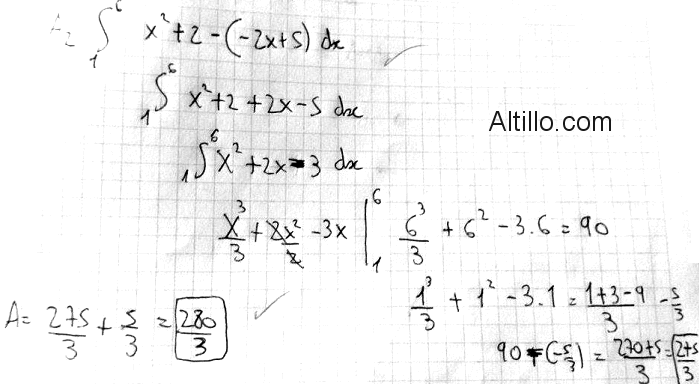 A₂ ∫₁⁶ x² + 2 - (-2x+5) dx
∫₁⁶ x² + 2 + 2x - 5 dx
Altillo.com
∫₁⁶ x² + 2x - 3 dx
x³/3 + 2x²/2 - 3x |₁⁶ 6³/3 + 6² - 3.6 = 90
1³/3 + 1² - 3.1 = (1+3-9)/3 - 5/3
A = 275/3 + 5/3 = 280/3
90 - (-5/3) = (270+5)/3 = 275/3